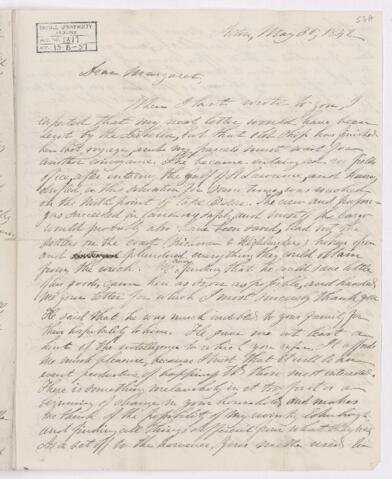 McGILL UNIVERSITY
ARCHIVES
ACC. NO. 1377
REF.
May 30, 1842
Dear Margaret,
When I last wrote to you, I
expected that my next letter would have been
sent by the but that old Ship has finished
her last voyage, and my parcels must wait for
another conveyance. She became entangled in fields
of ice, after entering the gulf of St Lawrence, and having
in this situation for some time, was wrecked
on the North point of Cape Breton. The crew and passen-
gers succeeded in landing safely, and most of the cargo
would probably also have been saved, had not the
settlers on the coast Highlanders) broken open
and plundered everything they could obtain
from the wreck. finding that he could save little
of his goods, came here as soon as possible, and handed
me your letter for which I most sincerely thank you.
He said that he was much indebted to your family for
their hospitality to him. He gave me at least a
hint of the intelligence to which you refer. It affords
me much pleasure, because I trust that it will be an
event productive of happiness to those most interested.
There is something melancholy in it too for it is a
beginning of change in your household, and makes
me think of the possibility of my
and finding all things different from what they were.
As a set off to this however, your mother used to